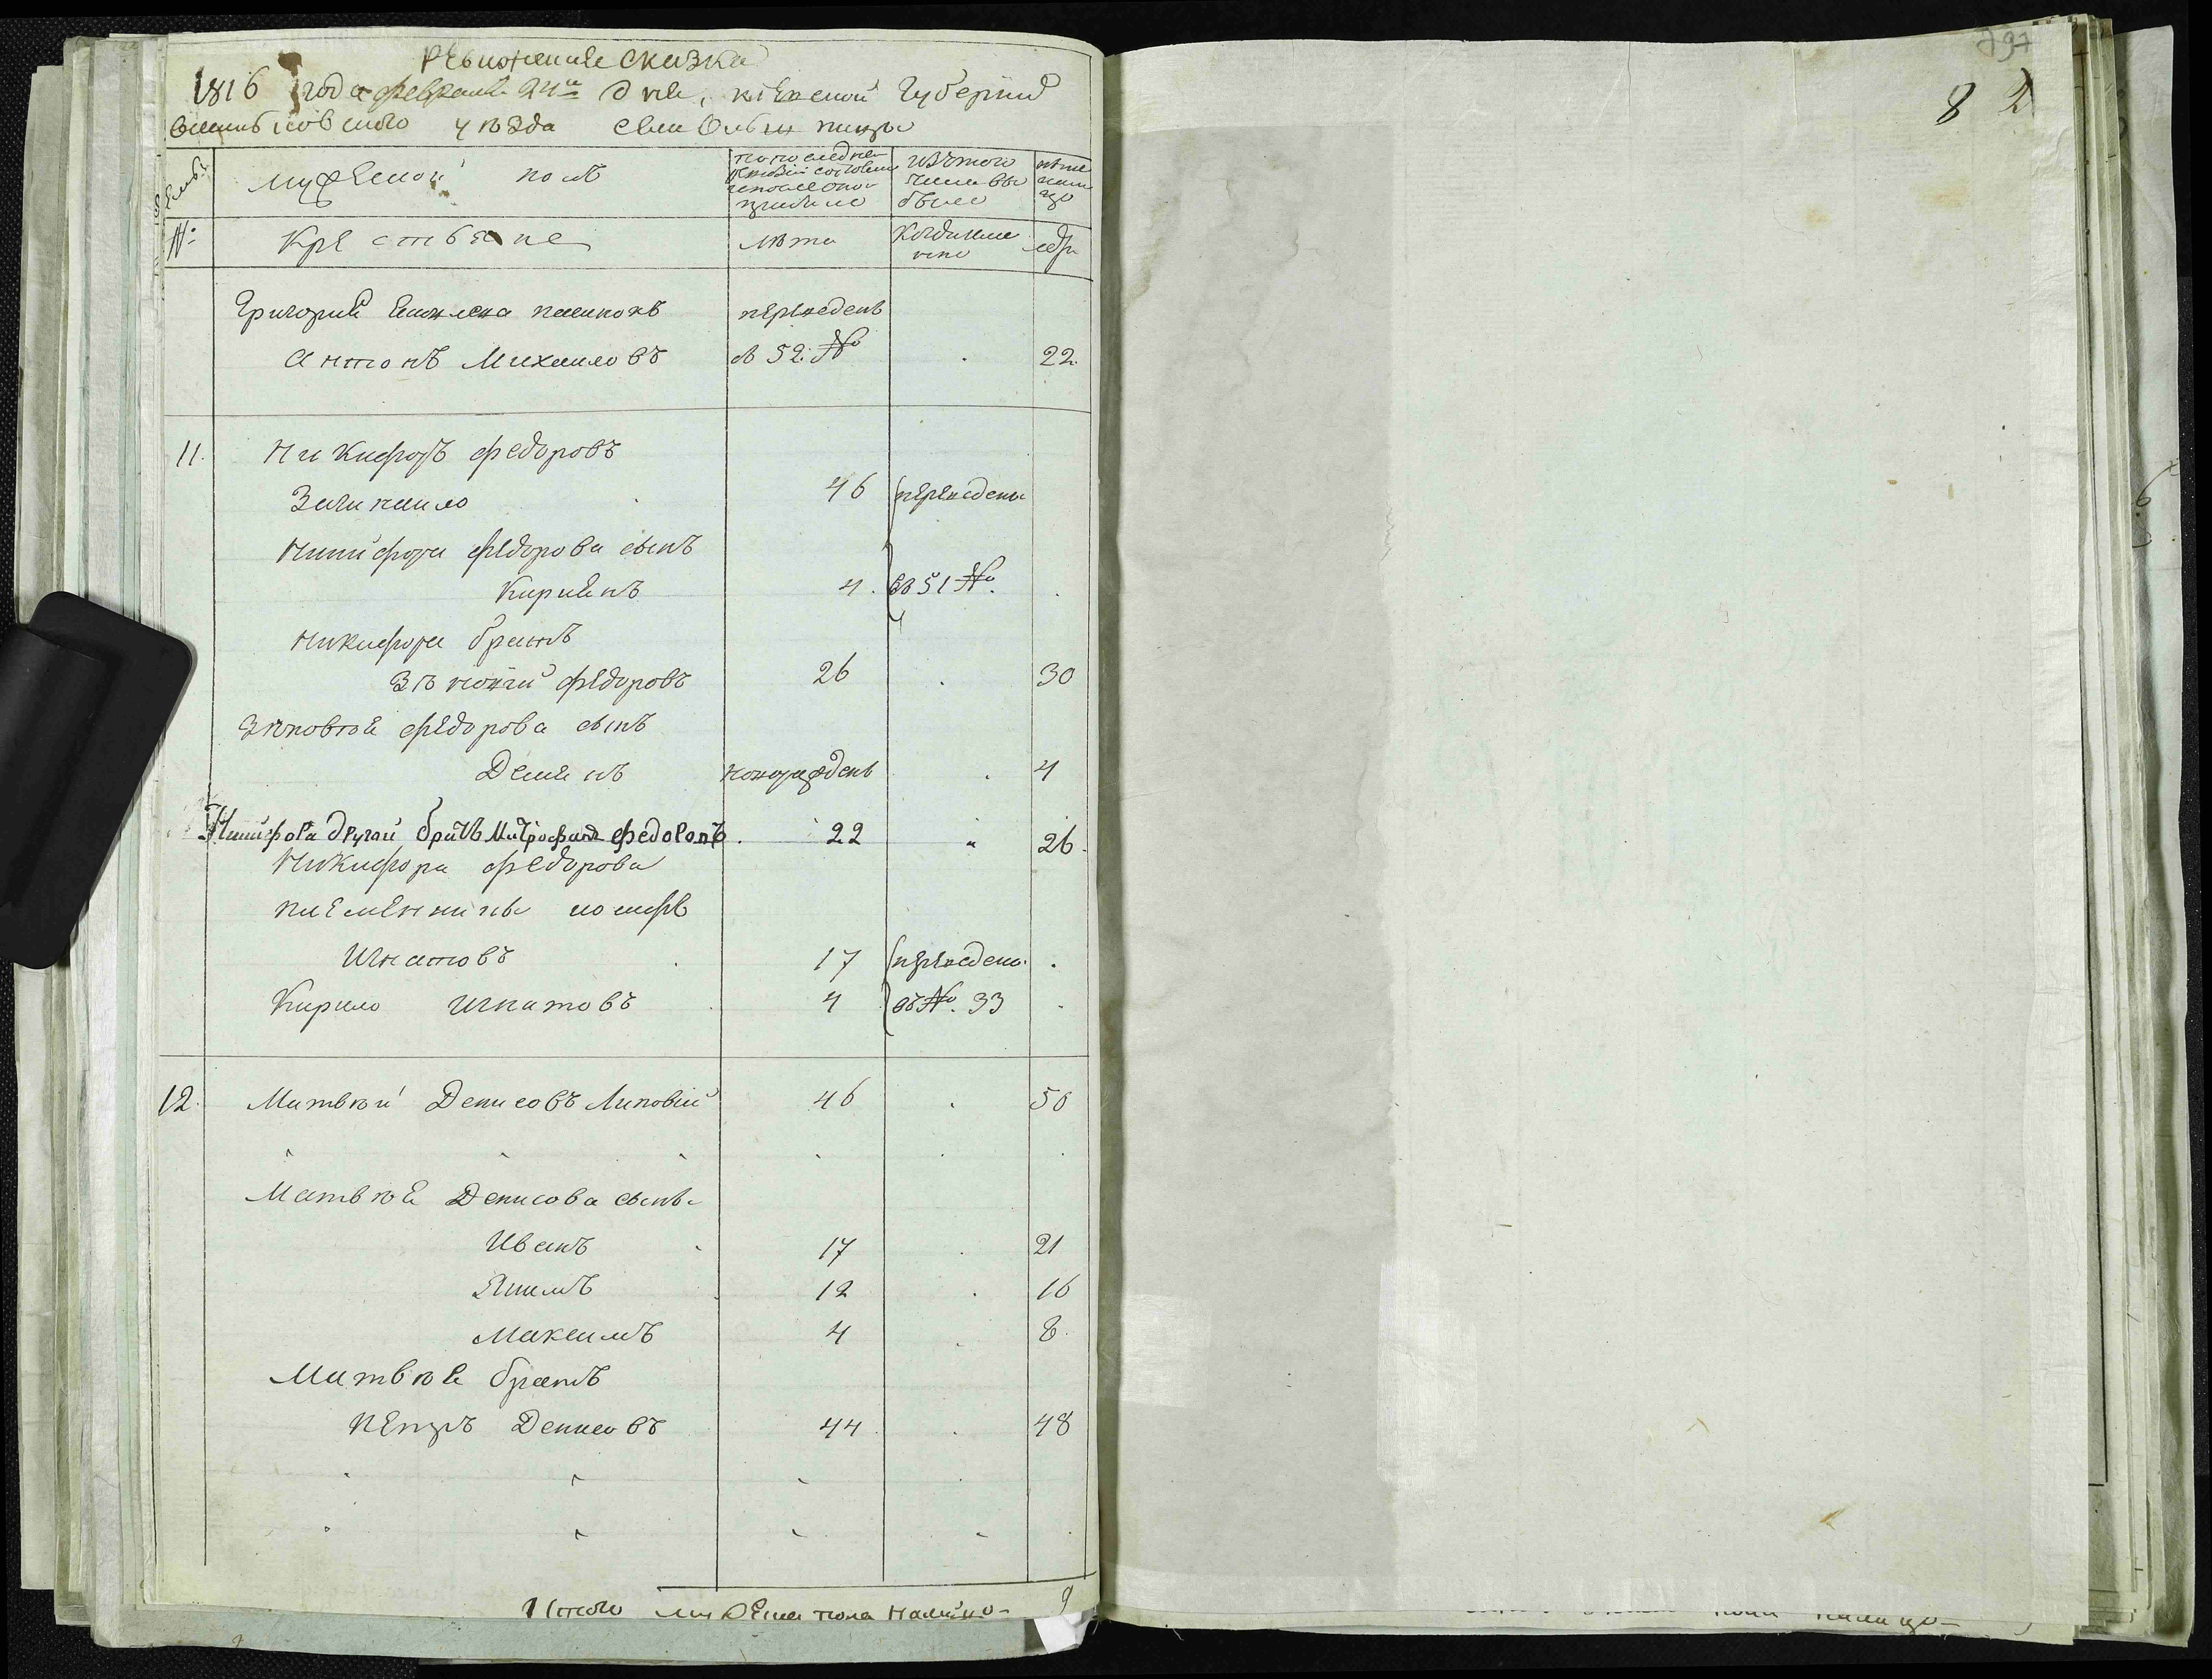 Ревижская сказка
1816 года февраля 24го дня, Кіевской Губерніи
Васильковского уезда села
Мужеской полъ
по последней ревизіи состояло и после оно прибыло
изъ того числа выбыло
ныне на лицо
№
Крестьяне
лета
Когда именно
лета
Григорий пасинокъ переведенъ
Антонъ Михаиловъ съ 52: № 22.
11. Никифоръ федоровъ
46 переведены
Никифора федорова сынъ
4. въ 51 №.
Никифора братъ
Зѣновій федоровъ 26 30
Зѣновія федорова сынъ
Демянъ новорожденъ 4
Никифора другий братъ Митрофанъ федоровъ. 22 " 26.
Никифора федорова
племянники
Игнатовъ 17 переведены
Кирило Игнатовъ 4 въ №. 33
12. Матвѣй Денисовъ Липовій 46 50
Матвѣя Денисова сыны
Иванъ 17 21
Якимъ 12 16
Максимъ 4 8.
Матвѣя братъ
Петръ Денисовъ 44 48
Итого мужеска пола налицо- 9
797
8 2